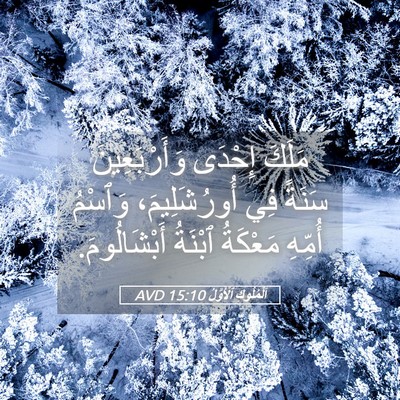 مَلَكَ إِحْدَى وَأَرْبَعِينَ
سَنَةً فِي أُورُشَلِيمَ، وَٱسْمُ
أُمِّهِ مَعْكَةُ ٱبْنَةُ أَبْشَالُومَ.
اَلْمُلُوكِ ٱلْأَوَّلُ 15:10 AVD